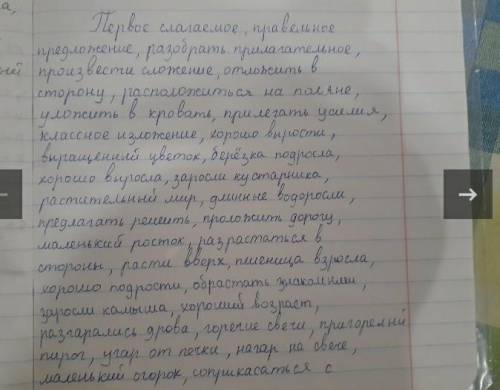 Первое слагаемое, правельное
предложение, разобрать прилагательное,
произвести сложение, отложить в
сторону, расположиться на поляне,
уложить в кровать, прилегать усилия,
классное изложение, хорошо вырости,
выращенный цветок, берёзка подросла,
хорошо выросла, заросли кустарника,
растительный мир, длинные водоросли,
предлагать решить, проложить дорогу,
маленький росток, разрастаться в
стороны, расти вверх, пшеница взросла,
хорошо подрости, обрастать знакомыми,
заросли камыша, хороший возраст,
разгарались дрова, горение свечи, пригорелый
пирог, угар от печки, нагар на свече,
маленький огорок, соприкасаться с